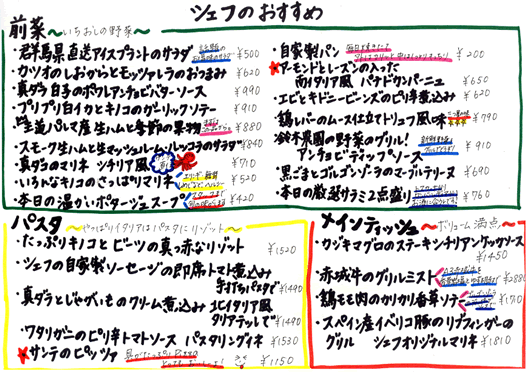 シェフのおすすめ
前菜 〜いちおしの野菜〜
・群馬県直送アイスプラントのサラダ ¥500
・カツオのしおからとモッツァレラのおつまみ ¥620
・真ダラ白子のポワレアンチョビバターソース ¥990
・プリプリ白イカとキノコのガーリックソテー ¥910
生温パルマ産生ハムと季節の果物 ¥880
・スモーク生ハムと生マッシュルームルッコラのサラダ ¥840
・真ダラのマリネ ツキリア風 ¥710
・いろんなキノコのさっぱりマリネ ¥520
・本日の温かいポタージュスープ ¥420
・自家製パン ¥200
★アーモンドとレーズンの入った
南イタリア風 パテドカンパーニュ ¥650
・エビとキドニービーンズのピリ辛煮込み ¥620
・鶏レバーのムース仕立てトリュフ風味 ¥790
・鈴木農園の野菜のグリル!
アンチョビディップソース ¥910
・黒ごまとゴルゴンゾーラのマーブルテリーヌ ¥690
・本日の厳選サラミ2点盛り ¥760
パスタ 〜やっぱりイタリアはパスタにリゾット〜
・たっぷりキノコとビーツの真っ赤なリゾット ¥1520
・シェフの自家製ソーセージの即席トマト煮込み
手打ちパスタで ¥1490
・真ダラとじゃがいものクリーム煮込み 北イタリア風
タリアテッレで ¥1490
・ワタリガニのピリ辛トマトソース パスタリングイネ ¥1530
★サンテのピッツァ ¥1150
メインディッシュ 〜ボリューム満点〜
・カジキマグロのステーキシチリアンケッカソース
¥1450
・赤城牛のグリルミスト ¥2880
・鶏モモ肉のカリカリ香草ソテー ¥1710
・スペイン産イベリコ豚のリブフィンガーの
グリル シェフオリジナルマリネ ¥1810